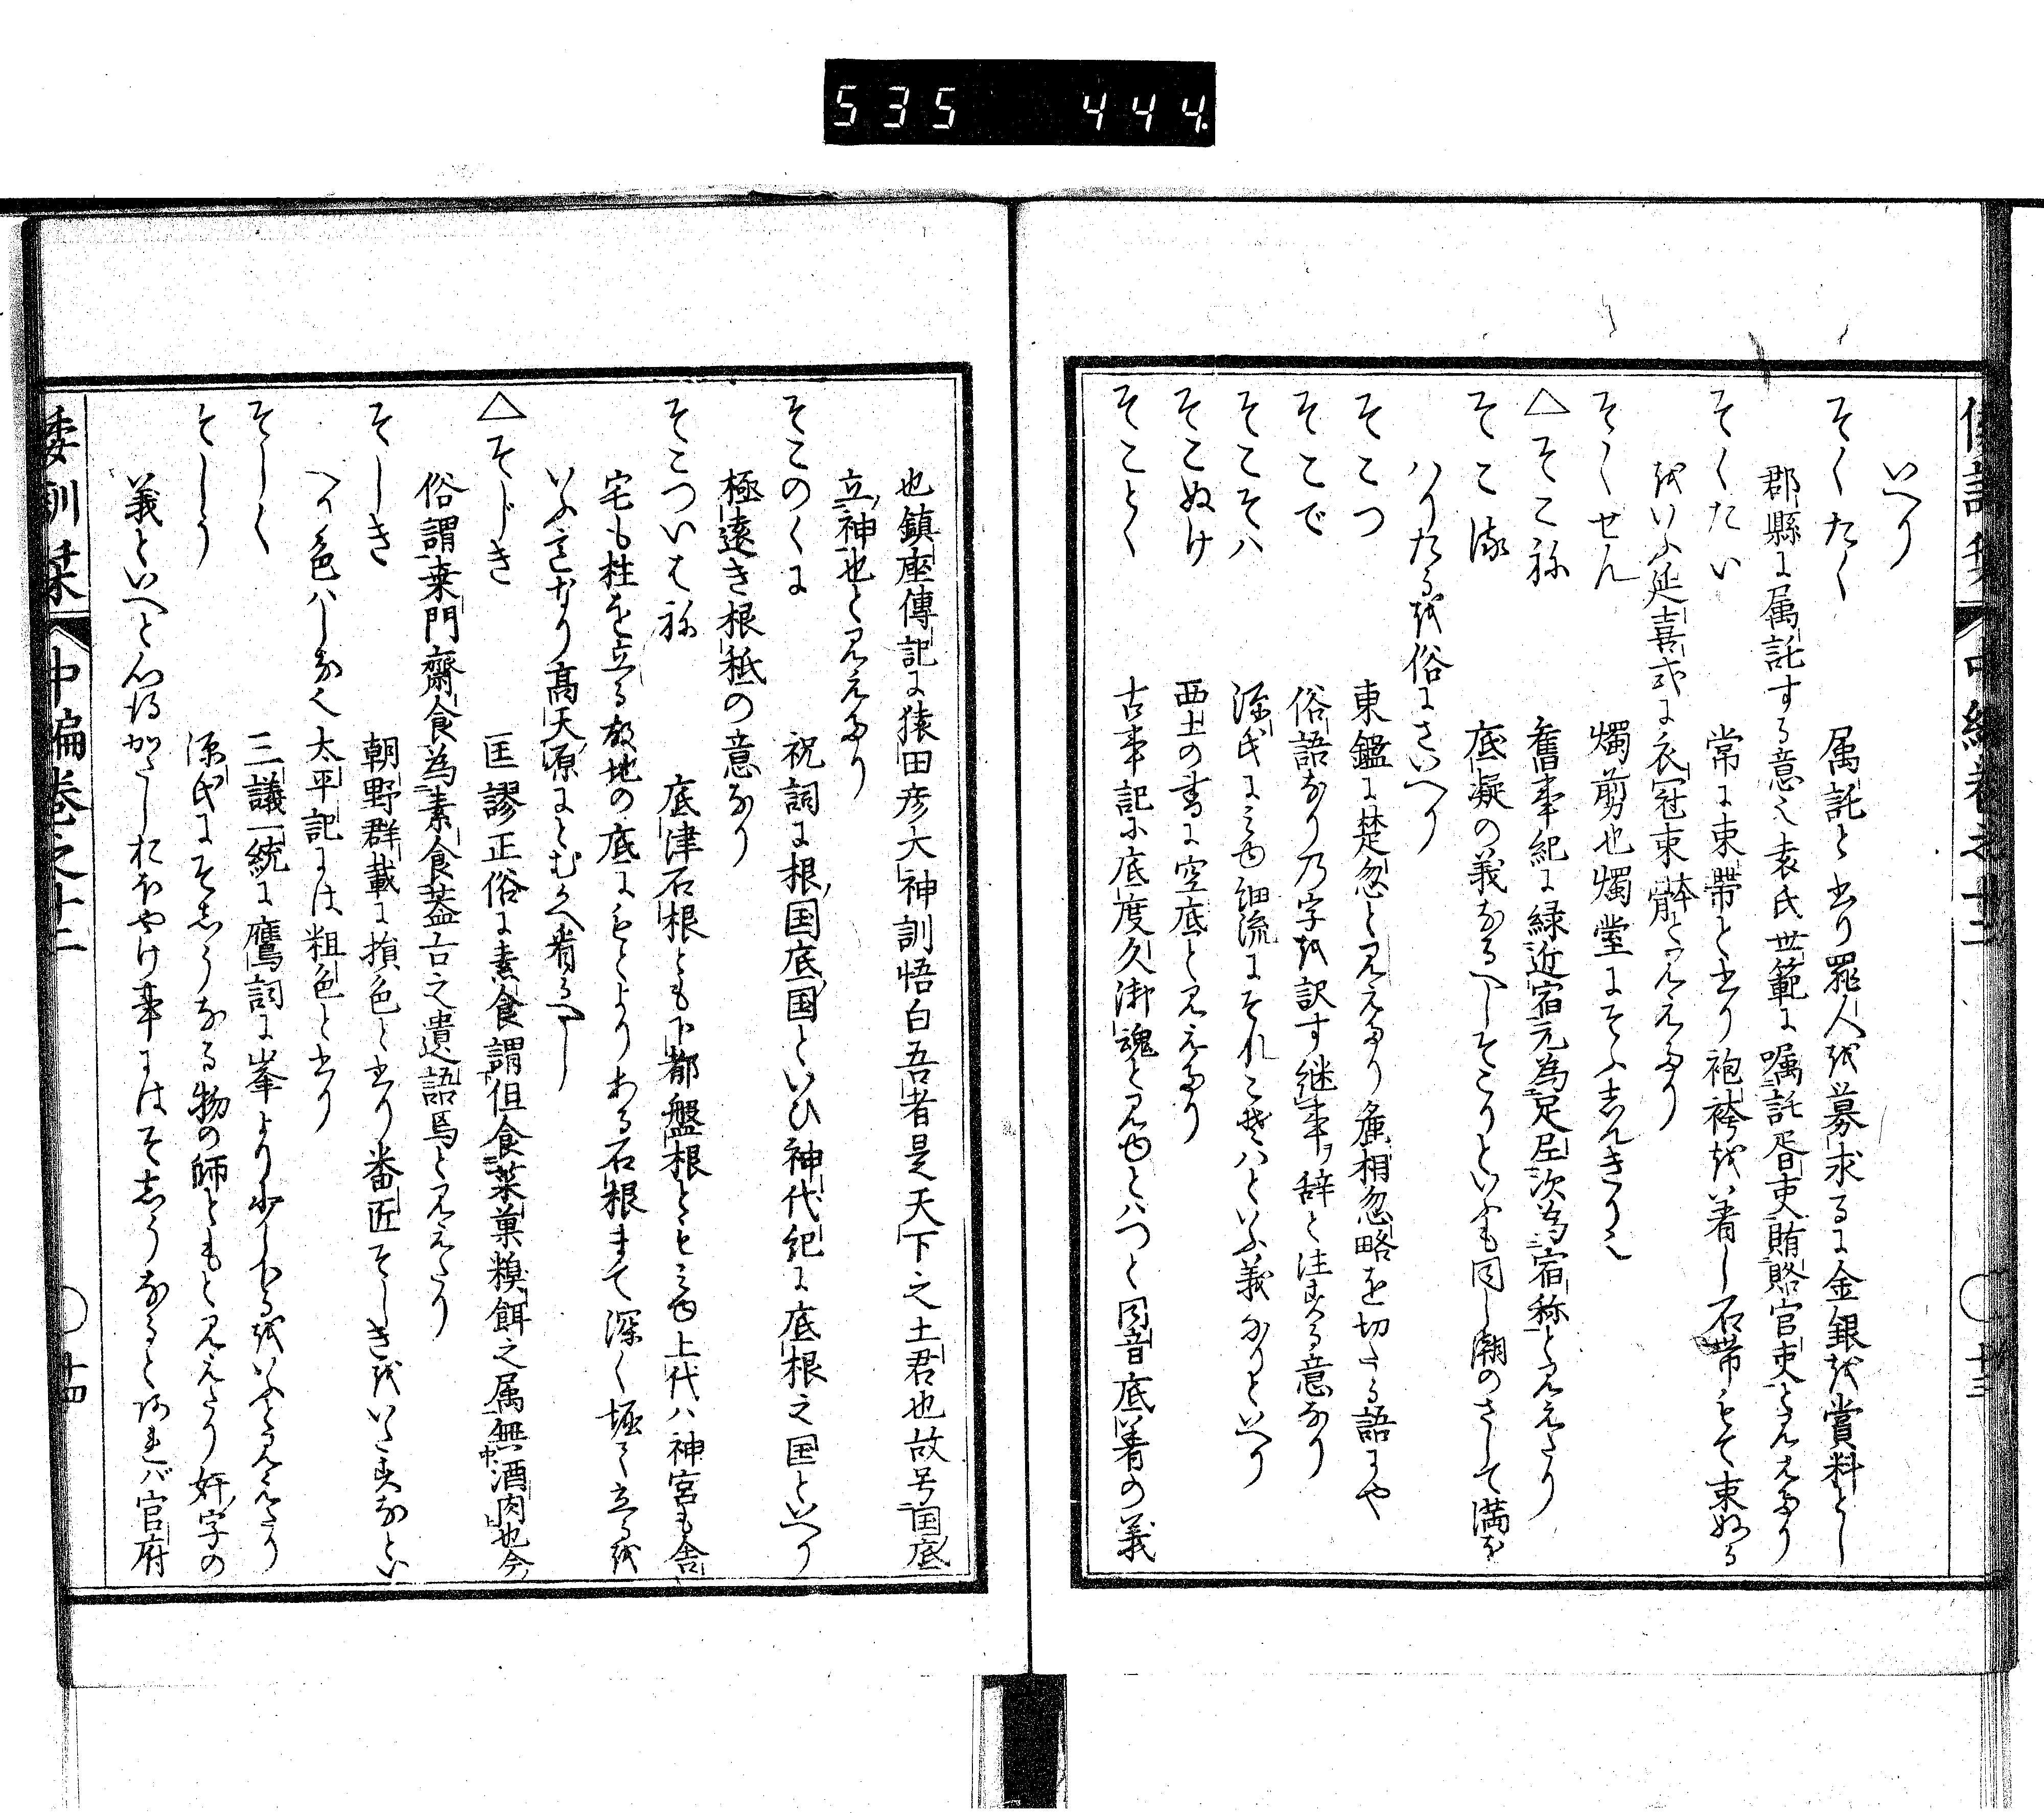 535 444.
いへり
そくたく 属託と書り罪人を募求るに金銀を賞料とし
郡縣に属託する意也袁氏世範に嘱託昏吏賄賂官吏と見えたり
そくたい 常に束帶と書り袍袴を着し石帯もて束ぬる
をいふ延喜式に衣冠束體と見えたり
そくせん 燭剪也燭堂にそふしんきり也
△そこね 舊事紀に緑近宿元為足尼次為宿称と見えたり
そこり 底凝の義なるへしそこりといふも同し潮のさして満を
はりたるを俗にさいへり
そこつ 東鑑に楚忽と見えたり麁相忽略を切たる語にや
そこで 俗語なり乃字を訳す継事ヲ辞と注する意なり
そこそハ 源氏にみゆ細流にそれこそハといふ義なりといへり
そこぬけ 西土の書に空底と見えたり
そことく 古事記に底度久御魂と見ゆとハつと同音底着の義
也鎮座傳記に猿田彦大神訓悟白吾者是天下之土君也故号国底
立神也と見えたり
そこのくに 祝詞に根国底国といひ神代紀に底根之国といへり
極遠き根抵の意なり
そこついはね 底津石根とも下都盤根ともみゆ上代ハ神宮も舎
宅も柱を立る故地の底にもとよりある石根まて深く堀て立るを
いふ言なり高天原にとむかへ看るへし
△そじき 匡謬正俗に素食謂但食菜菓糗餌之属無酒肉也今
俗謂桒門齋食為素食葢古之遺語焉と見えたり
そしき 朝野群載に損色と書り番匠そしきをいたすなとい
へり色ハしな也太平記には粗色と書り
そしく 三議一統に鷹詞に峯より少し下るをいふと見えたり
そしう 源氏にそしうなる物の師ともと見えたり奸字の
義といへと心得がたしおほやけ事にはそしうなると あれバ官府
倭訓栞 中編巻之十二 ○十三
倭訓栞 中編巻之十二 ○十四